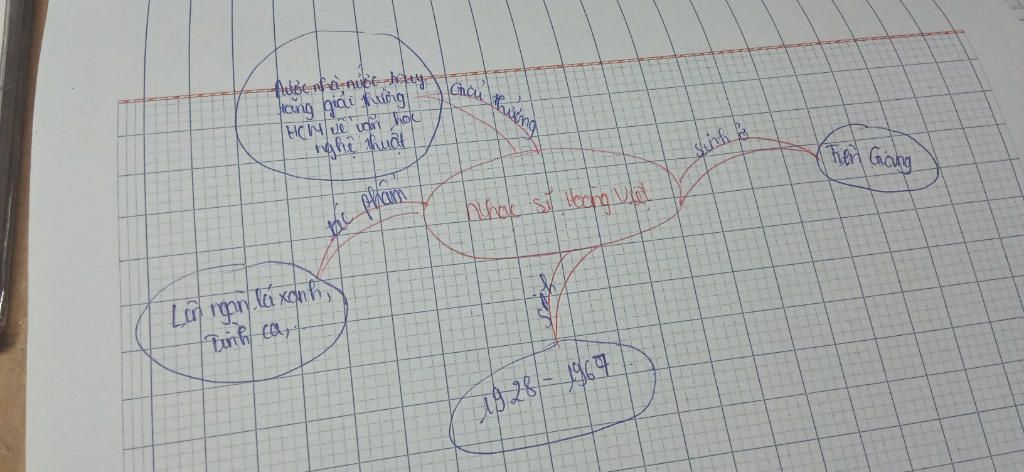 Được nhà nước truy
tăng giải thưởng
HCM về văn học
nghệ thuật
Giải thưởng
sinh ở
Tiền Giang
Nhạc sĩ Hoàng Việt
tác phẩm
Lên ngàn, lá xanh,
Tình ca,..
sinh
1928 - 1967